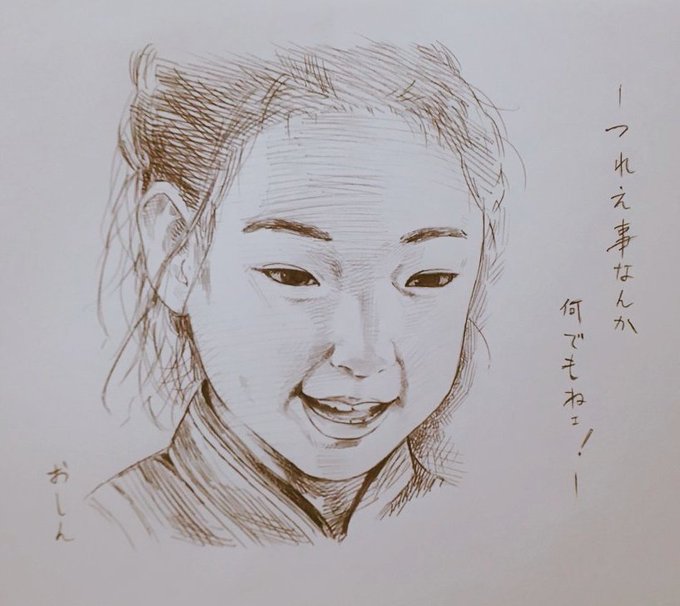 ーつれえ事なんか
何でもねェ！ー
おしん